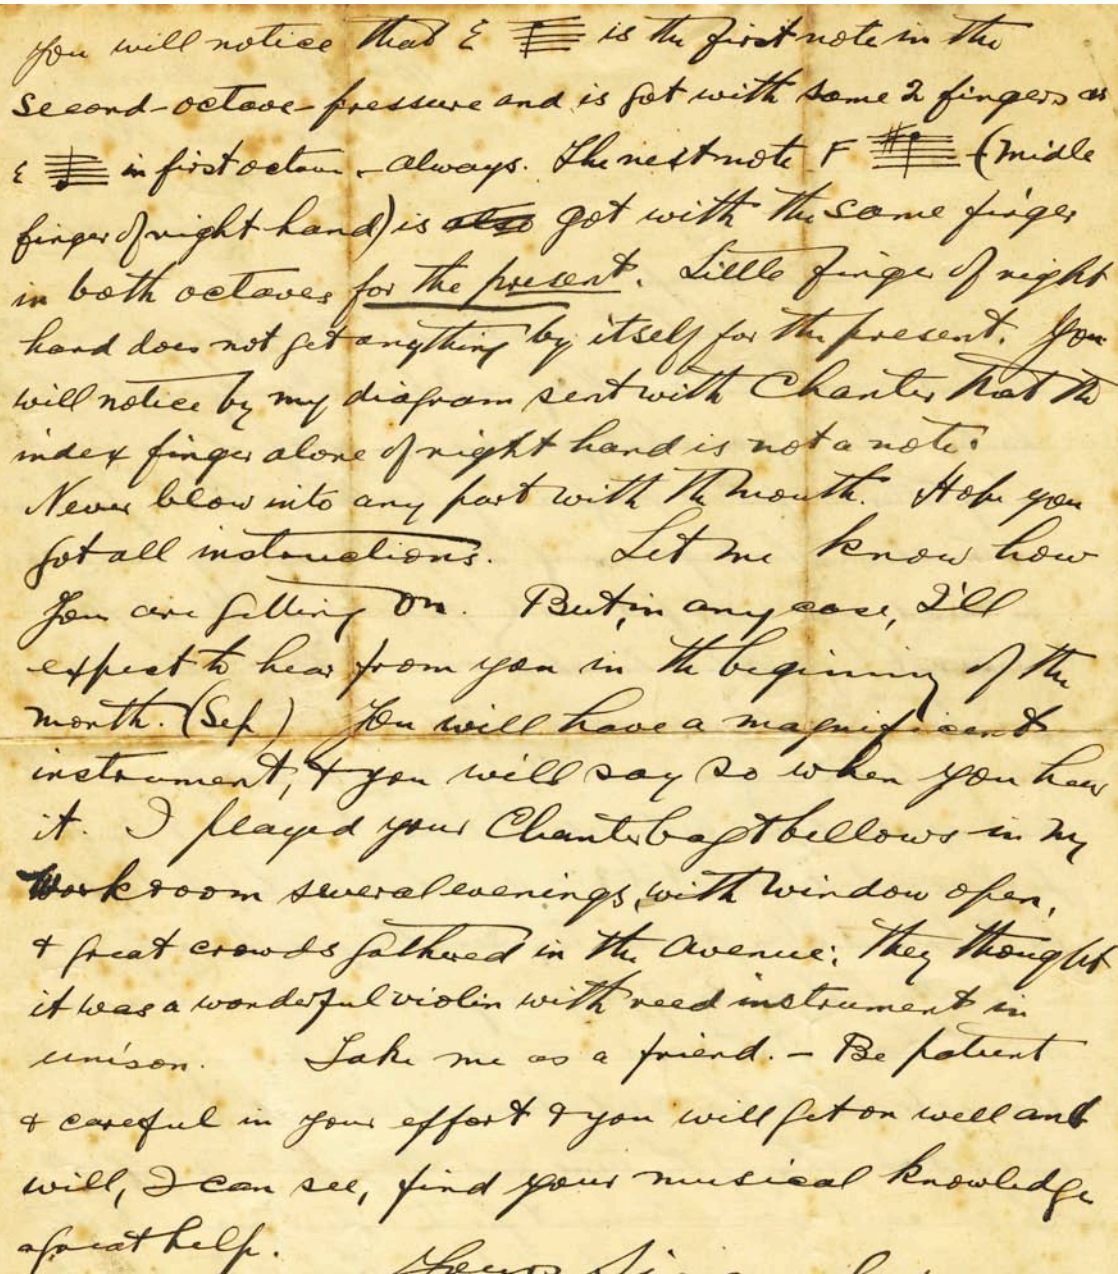 You will notice that E is the first note in the
second-octave-pressure and is got with same 2 fingers as
E in first octave - always. The next note F # (midle
finger of right hand) is also got with the same finger
in both octaves for the present. Little finger of right
hand does not get anything by itself for the present. You
will notice by my diagram sent with Chanter that the
index finger alone of right hand is not a note.
Never blow into any part with the mouth. Hope you
got all instructions. Let me know how
you are getting on. But, in any case, I'll
expect to hear from you in the begining of the
month. (Sep) You will have a magnificent
instrument, & you will say so when you hear
it. I played your Chanter bag & bellows in my
workroom several evenings, with window open,
& great crowds gathered in the avenue; they thought
it was a wonderful violin with reed instrument in
unison. Take me as a friend. - Be patient
& careful in your effort & you will get on well and
will, I can see, find your musical knowledge
a great help.
Yours